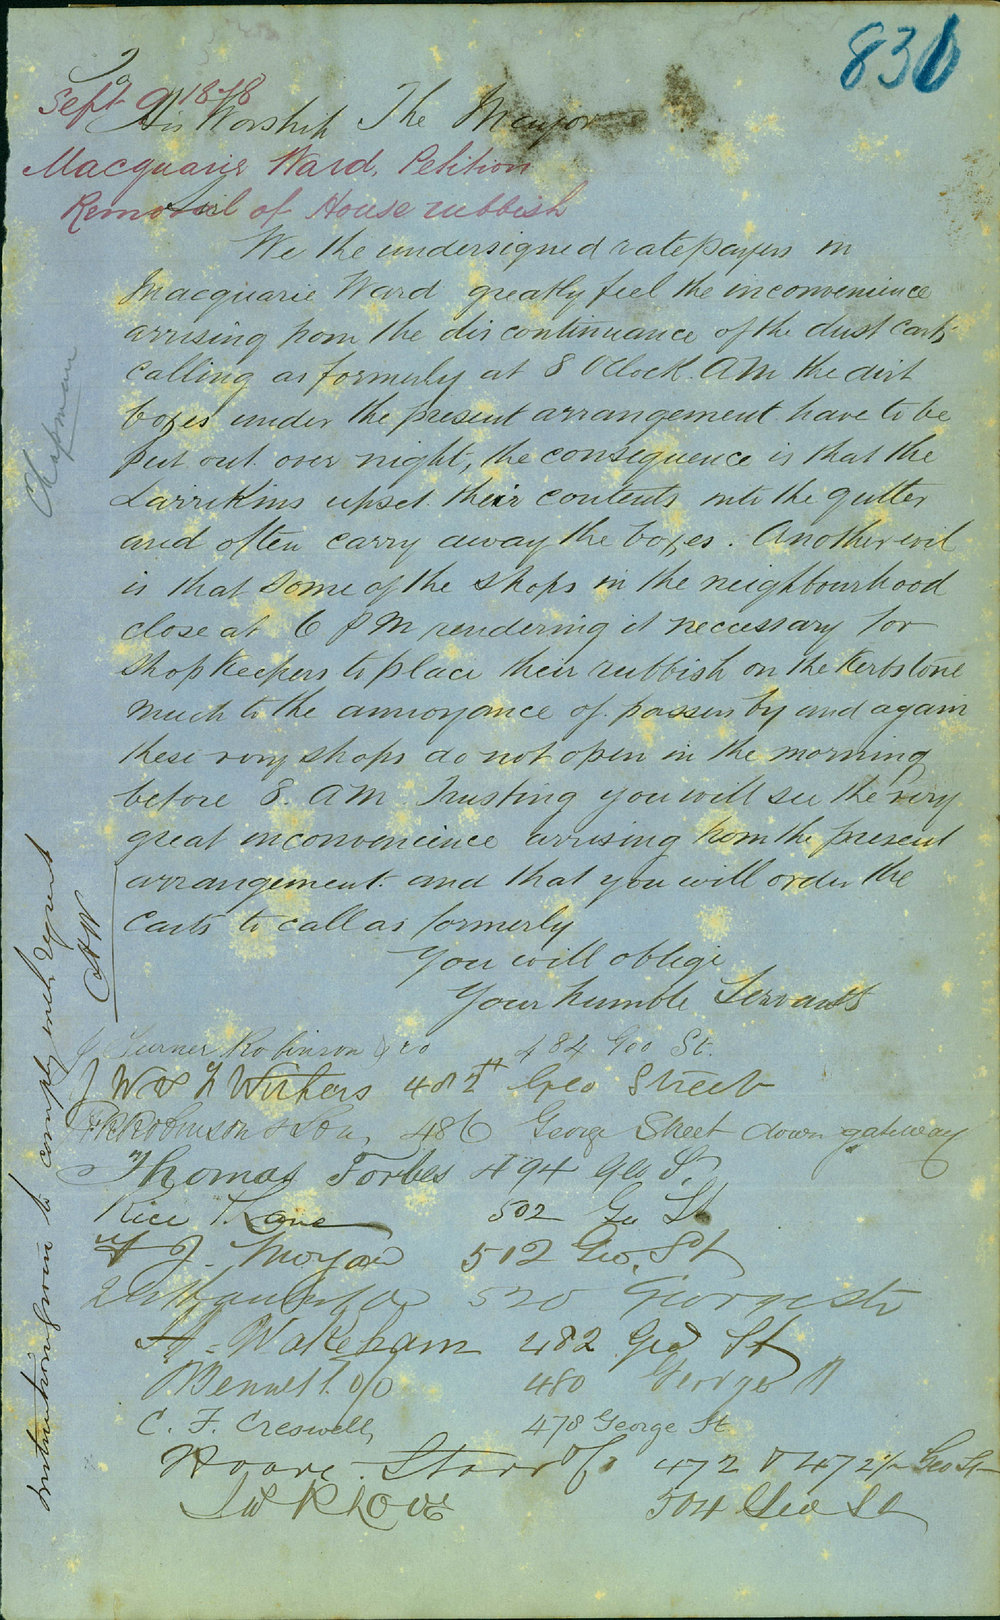 830
To
His Worship The Mayor
Sept 9 1878
Macquarie Ward. Petition
Removal of House rubbish
Sir
We the undersigned ratepayers in
Macquarie Ward greatly feel the inconvenience
arrising from the discontinuance of the dust carts
calling as formerly at 8 O'Clock. AM the dirt
boxes under the present arrangement have to be
put out over night, the consequence is that the
Larrikins upset their contents into the gutter
and often carry away the boxes. Another evil
is that some of the shops in the neighbourhood
close at 6 PM rendering it neccessary for
Shopkeepers to place their rubbish on the Kerbstone
much to the annoyance of passers by and again
these very shops do not open in the morning
before 8. AM. Trusting you will see the very
great inconvenience arrising from the present
arrangement. and that you will order the
Carts to call as formerly
You will oblige
Your humble Servants
Turner Robinson & Co 484 Geo St.
J W & F Withers 482 Geo Street
Robinson & Son, 486 George Street down gateway
Thomas Forbes 494 Geo S.
Rice T. Kane 502 Geo St
J. Moyan 512 Geo. St
520 George St
A. Wakeham 482 Geo St
Bennett & Co 480 George St
C. F. Creswell, 478 George St
Hoare. Starr & Co 472 & 472½ Geo St
Love 504 Geo St
Chapman
Instructions given to comply with request
CHW